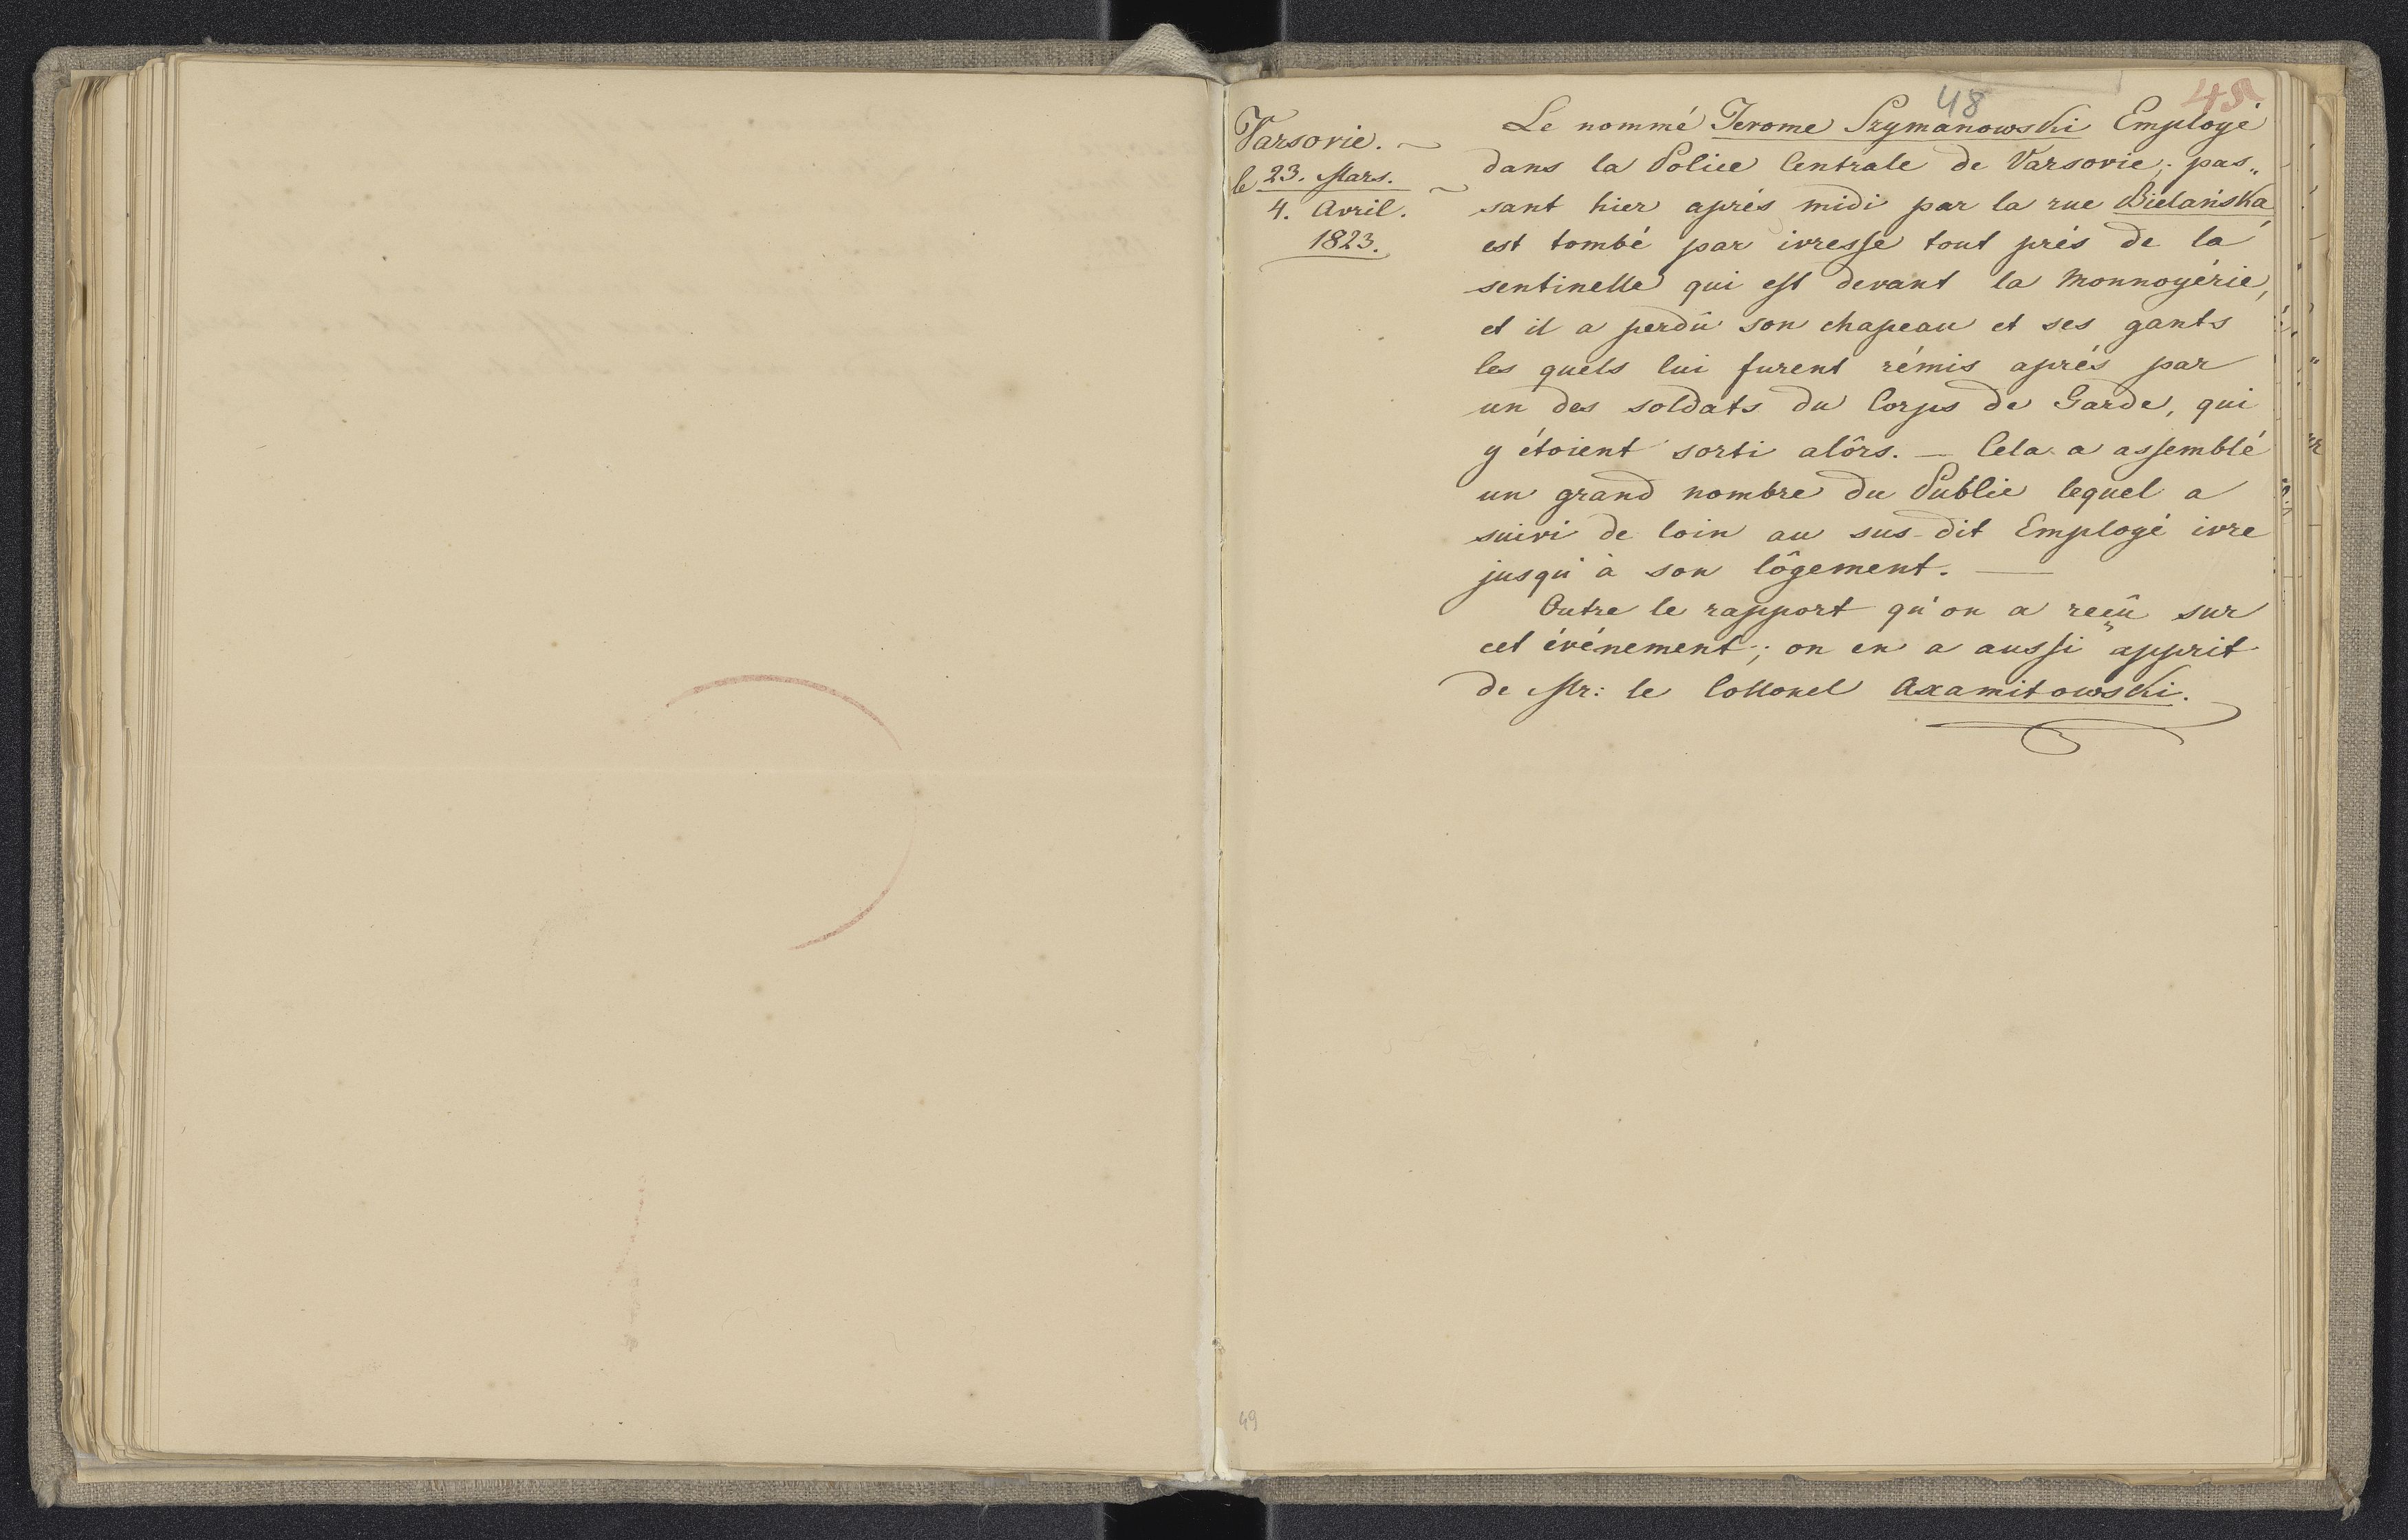 48
45
Varsovie. ~
le 23. Mars. ~
4. Avril.
1823.
Le nommé Jerome Szymanowski Employé
dans la Police Centrale de Varsovie; pas„
sant hier aprés midi par la rue Bielańska,
est tombé par ivresse tout prés de la
sentinelle qui est devant la Monnoyérie,
et il a perdû son chapeau et ses gants
les quels lui furent rémis aprés par
un des soldats du Corps de Garde, qui
y étoient sorti alôrs. — Cela a assemblé
un grand nombre du Public lequel a
suivi de loin au sus-dit Employé ivre
jusqu'à son lôgement. —
Outre le rapport qu'on a reçû sur
cet événement; on en a aussi apprit
de Mr: le Collonel Axamitowski.
49